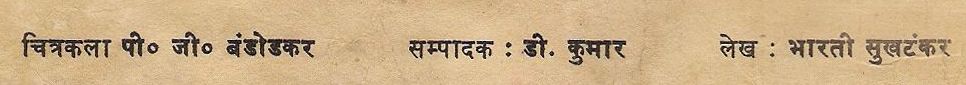 चित्रकला पी० जी० बंडोडकर सम्पादक : डी. कुमार लेख : भारती सुखटंकर